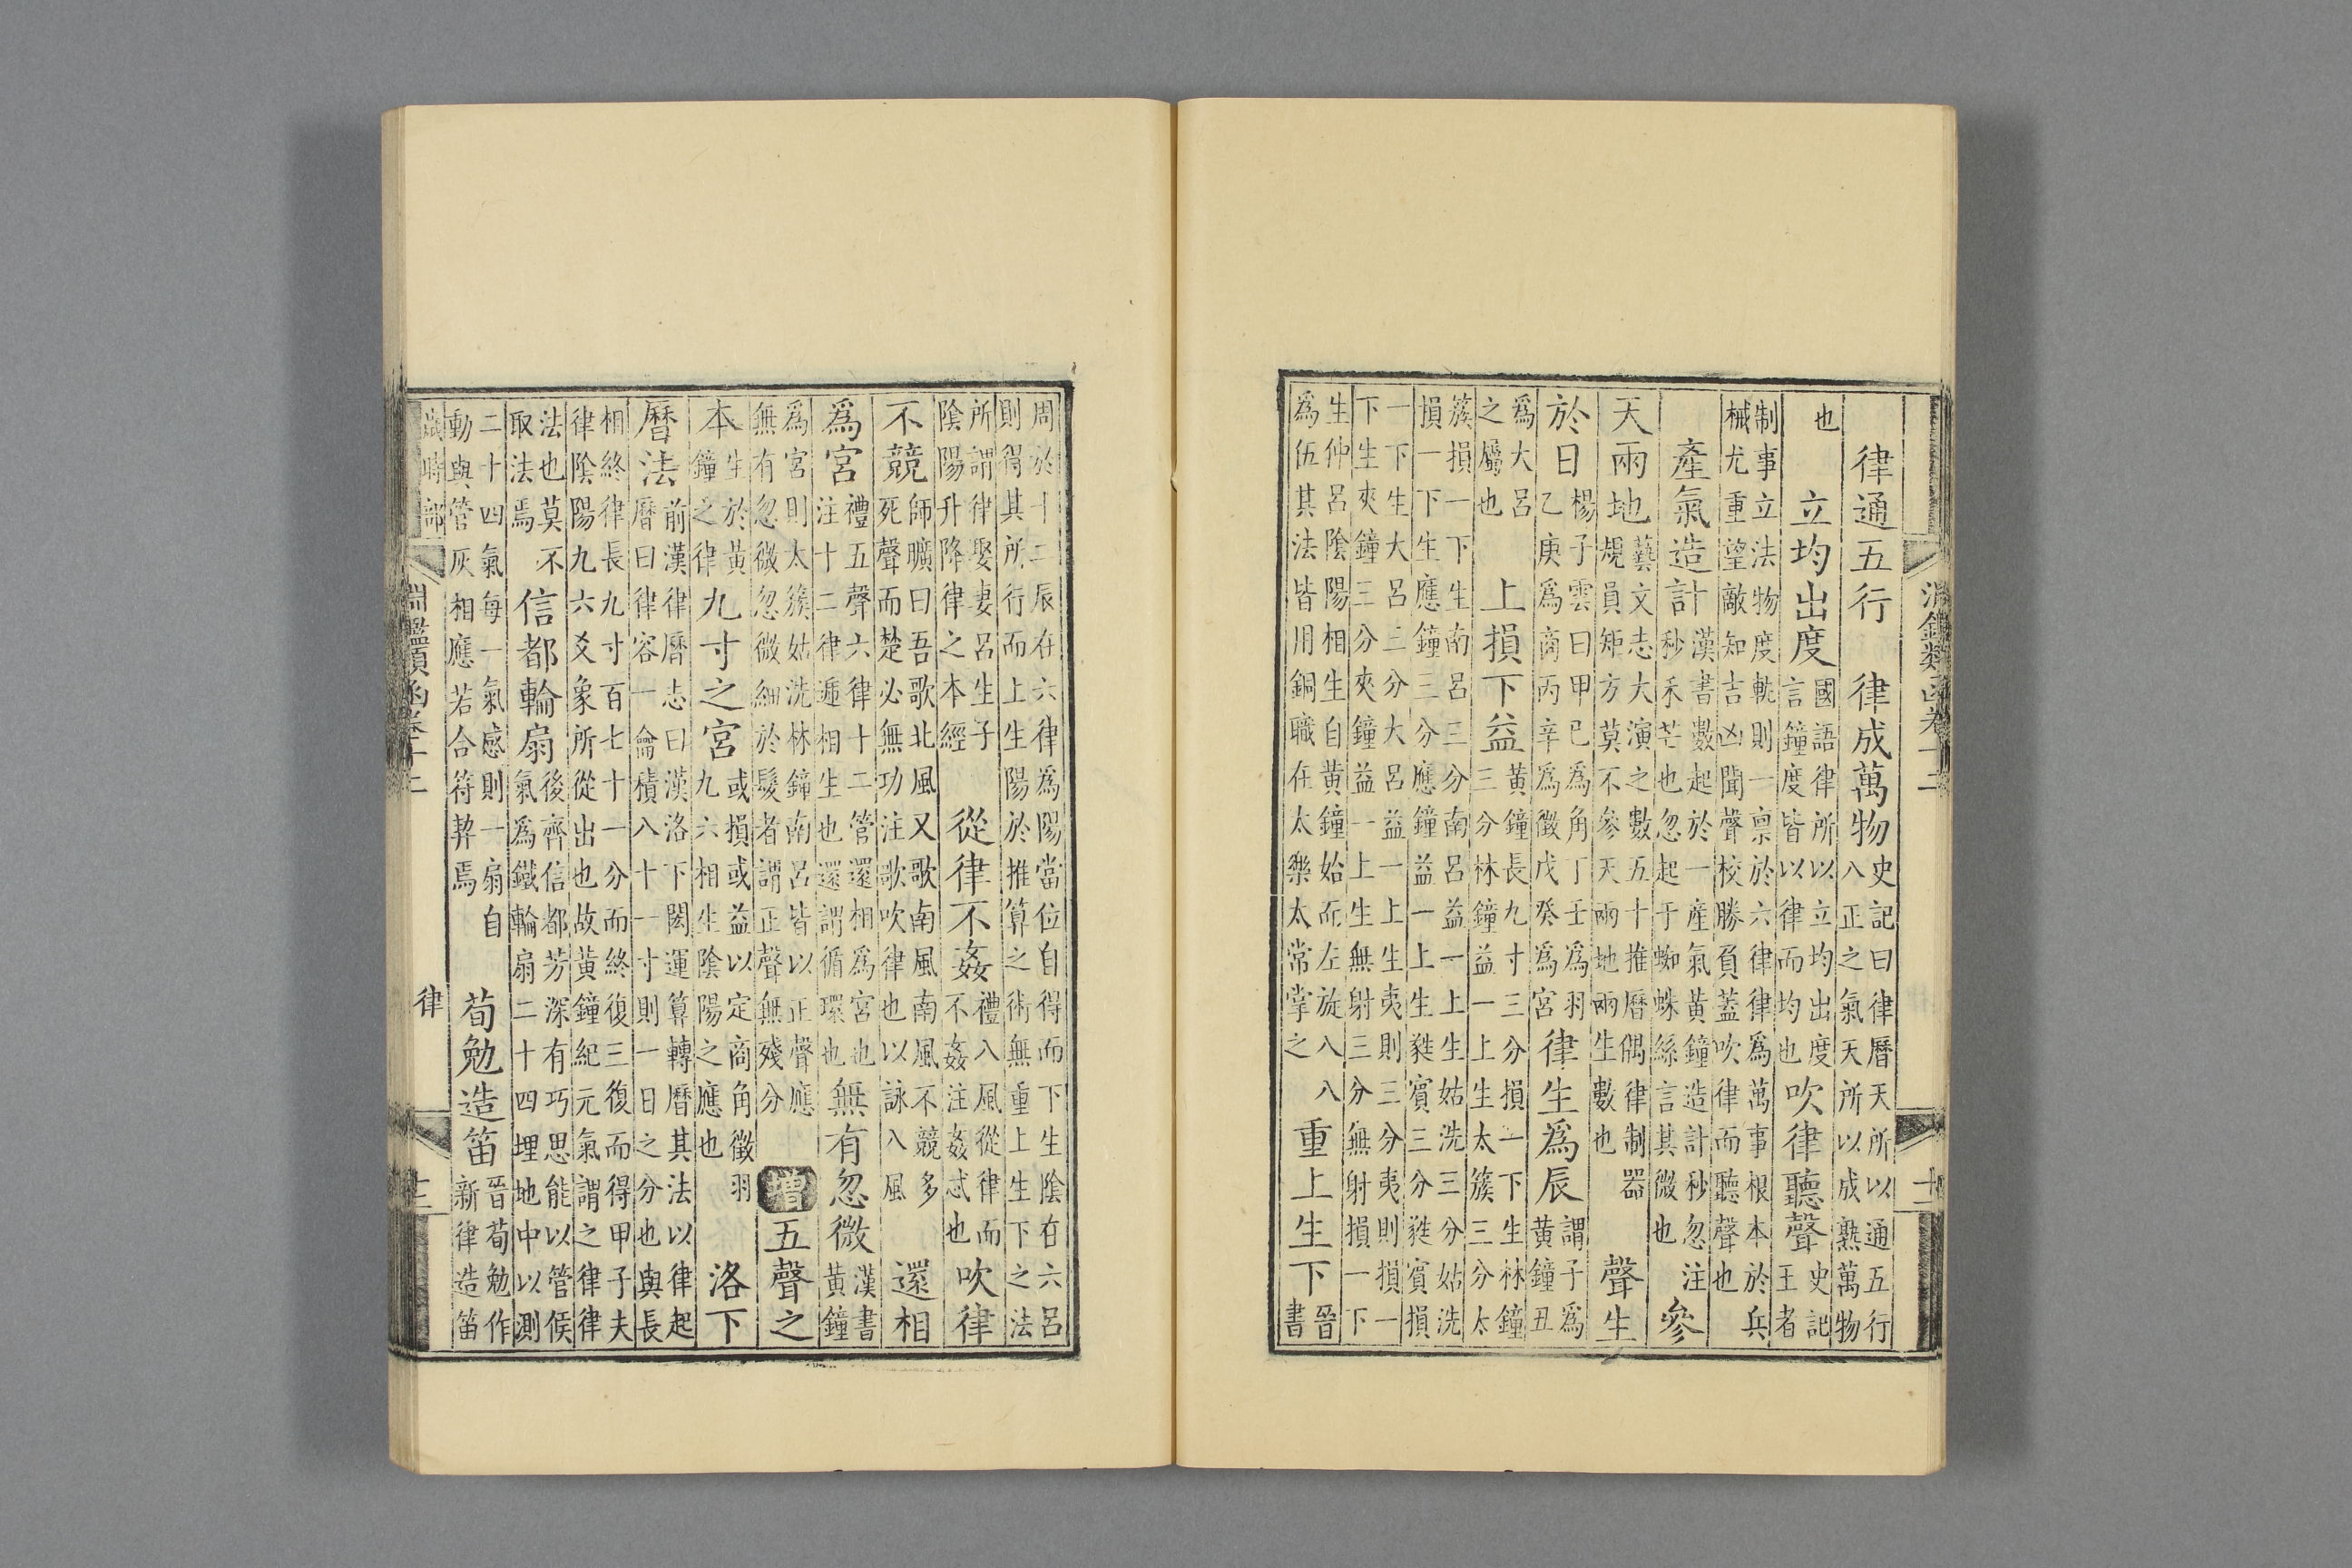 淵鑑類函卷十二
十二
律通五行　律成萬物史記曰律曆天所以通五行
八正之氣天所以成熟萬物
也　立均出度國語律所以立均出度
言鐘度皆以律而均也吹律聽聲史記
王者
制事立法物度軌則一稟於六律律為萬事根本於兵
械尤重望敵知吉凶聞聲校勝負蓋吹律而聽聲也
產氣造計漢書數起於一產氣黃鐘造計秒忽注
秒禾芒也忽起于蜘蛛絲言其微也參
天兩地藝文志大演之數五十推曆偶律制器
規員矩方莫不參天兩地兩生數也聲生
於日楊子雲曰甲巳為角丁壬為羽
乙庚為商丙辛為徵戊癸為宮律生為辰謂子為
黃鐘丑
為大呂
之屬也上損下益黃鐘長九寸三分損一下生林鐘
三分林鐘益一上生太簇三分太
簇損一下生南呂三分南呂益一上生姑洗三分姑洗
損一下生應鐘三分應鐘益一上生蕤賓三分蕤賓損
一下生大呂三分大呂益一上生夷則三分夷則損一
下生夾鐘三分夾鐘益一上生無射三分無射損一下
生仲呂陰陽相生自黃鐘始而左旋八八
為伍其法皆用銅職在太樂太常掌之重上生下晉
書
周於十二辰在六律為陽當位自得而下生陰在六呂
則得其所行而上生陽於推算之術無重上生下之法
所謂律娶妻呂生子
陰陽升降律之本經從律不姦禮八風從律而
不姦注姦忒也吹律
不競師曠曰吾歌北風又歌南風南風不競多
死聲而楚必無功注歌吹律也以詠八風還相
為宮禮五聲六律十二管還相為宮也
注十二律遞相生也還謂循環也無有忽微漢書
黃鐘
為宮則太簇姑洗林鐘南呂皆以正聲應
無有忽微忽微細於髮者謂正聲無殘分增五聲之
本生於黃
鐘之律九寸之宮或損或益以定商角徵羽
九六相生陰陽之應也洛下
曆法前漢律曆志曰漢洛下閎運算轉曆其法以律起
曆曰律容一龠積八十一寸則一日之分也與長
相終律長九寸百七十一分而終復三復而得甲子夫
律陰陽九六爻象所從出也故黃鐘紀元氣謂之律律
法也莫不
取法焉信都輪扇後齊信都芳深有巧思能以管候
氣為鐵輪扇二十四埋地中以測
二十四氣每一氣感則一扇自
動與管灰相應若合符契焉荀勉造笛晉荀勉作
新律造笛
歲時部
淵鑑類函卷十二
律
十二